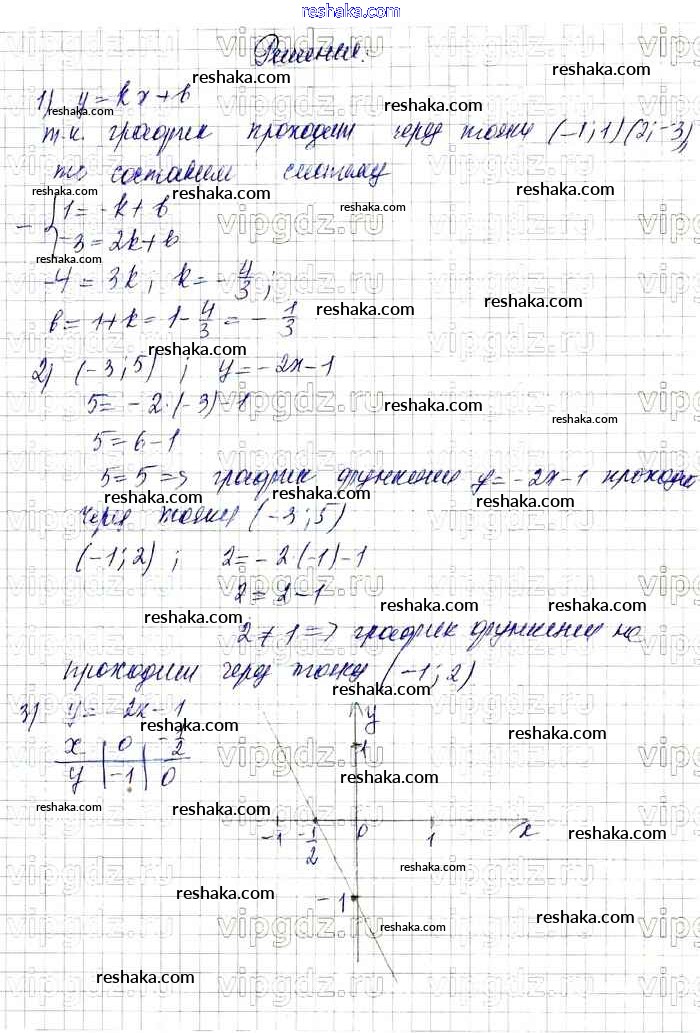 reshaka.com
Решение.
1) y = kx + b
т.к. график проходит через точки (-1; 1) (2; -3),
то составим систему
- { 1 = -k + b
-3 = 2k + b
-4 = 3k; k = -4/3;
b = 1 + k = 1 - 4/3 = -1/3
2) (-3; 5); y = -2x - 1
5 = -2·(-3) - 1
5 = 6 - 1
5 = 5 => график функции y = -2x - 1 проходит
через точку (-3; 5)
(-1; 2); 2 = -2(-1) - 1
2 = 2 - 1
2 ≠ 1 => график функции не
проходит через точку (-1; 2)
3) y = -2x - 1
x | 0 | -1/2
y | -1 | 0
y
1
-1 -1/2 0 1 x
-1
reshaka.com
vipgdz.ru